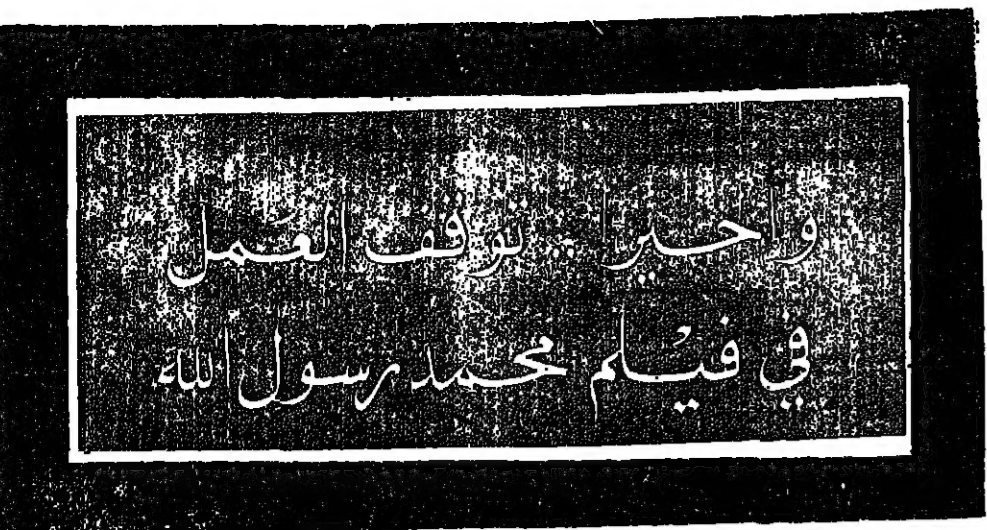 وأخيرا .. توقف العمل
في فيلم محمد رسول الله